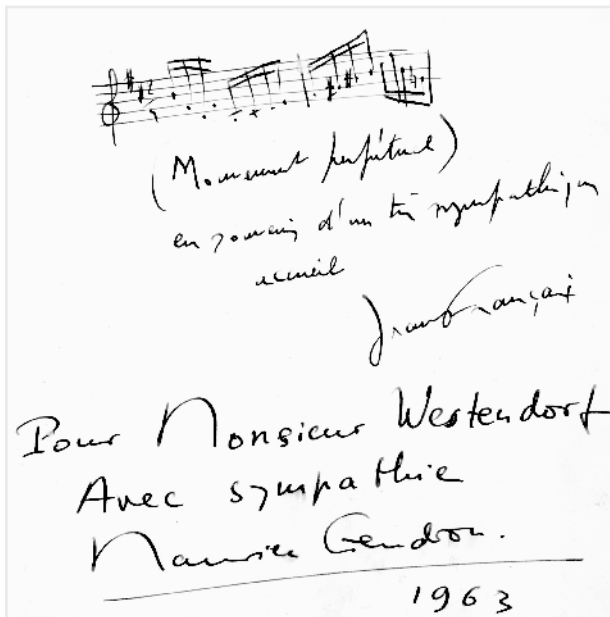 (Mouvement perpétuel)
en souvenir d'un très sympathique
accueil
Jean Françaix
Pour Monsieur Westendorf
Avec sympathie
Maurice Gendron.
1963